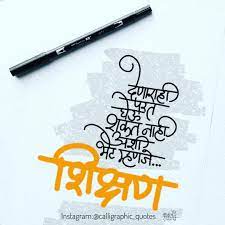 देणाराही
परत
घेऊ
शकत नाही
अशी
भेट म्हणजे...
शिक्षण
Instagram:@calligraphic_quotes